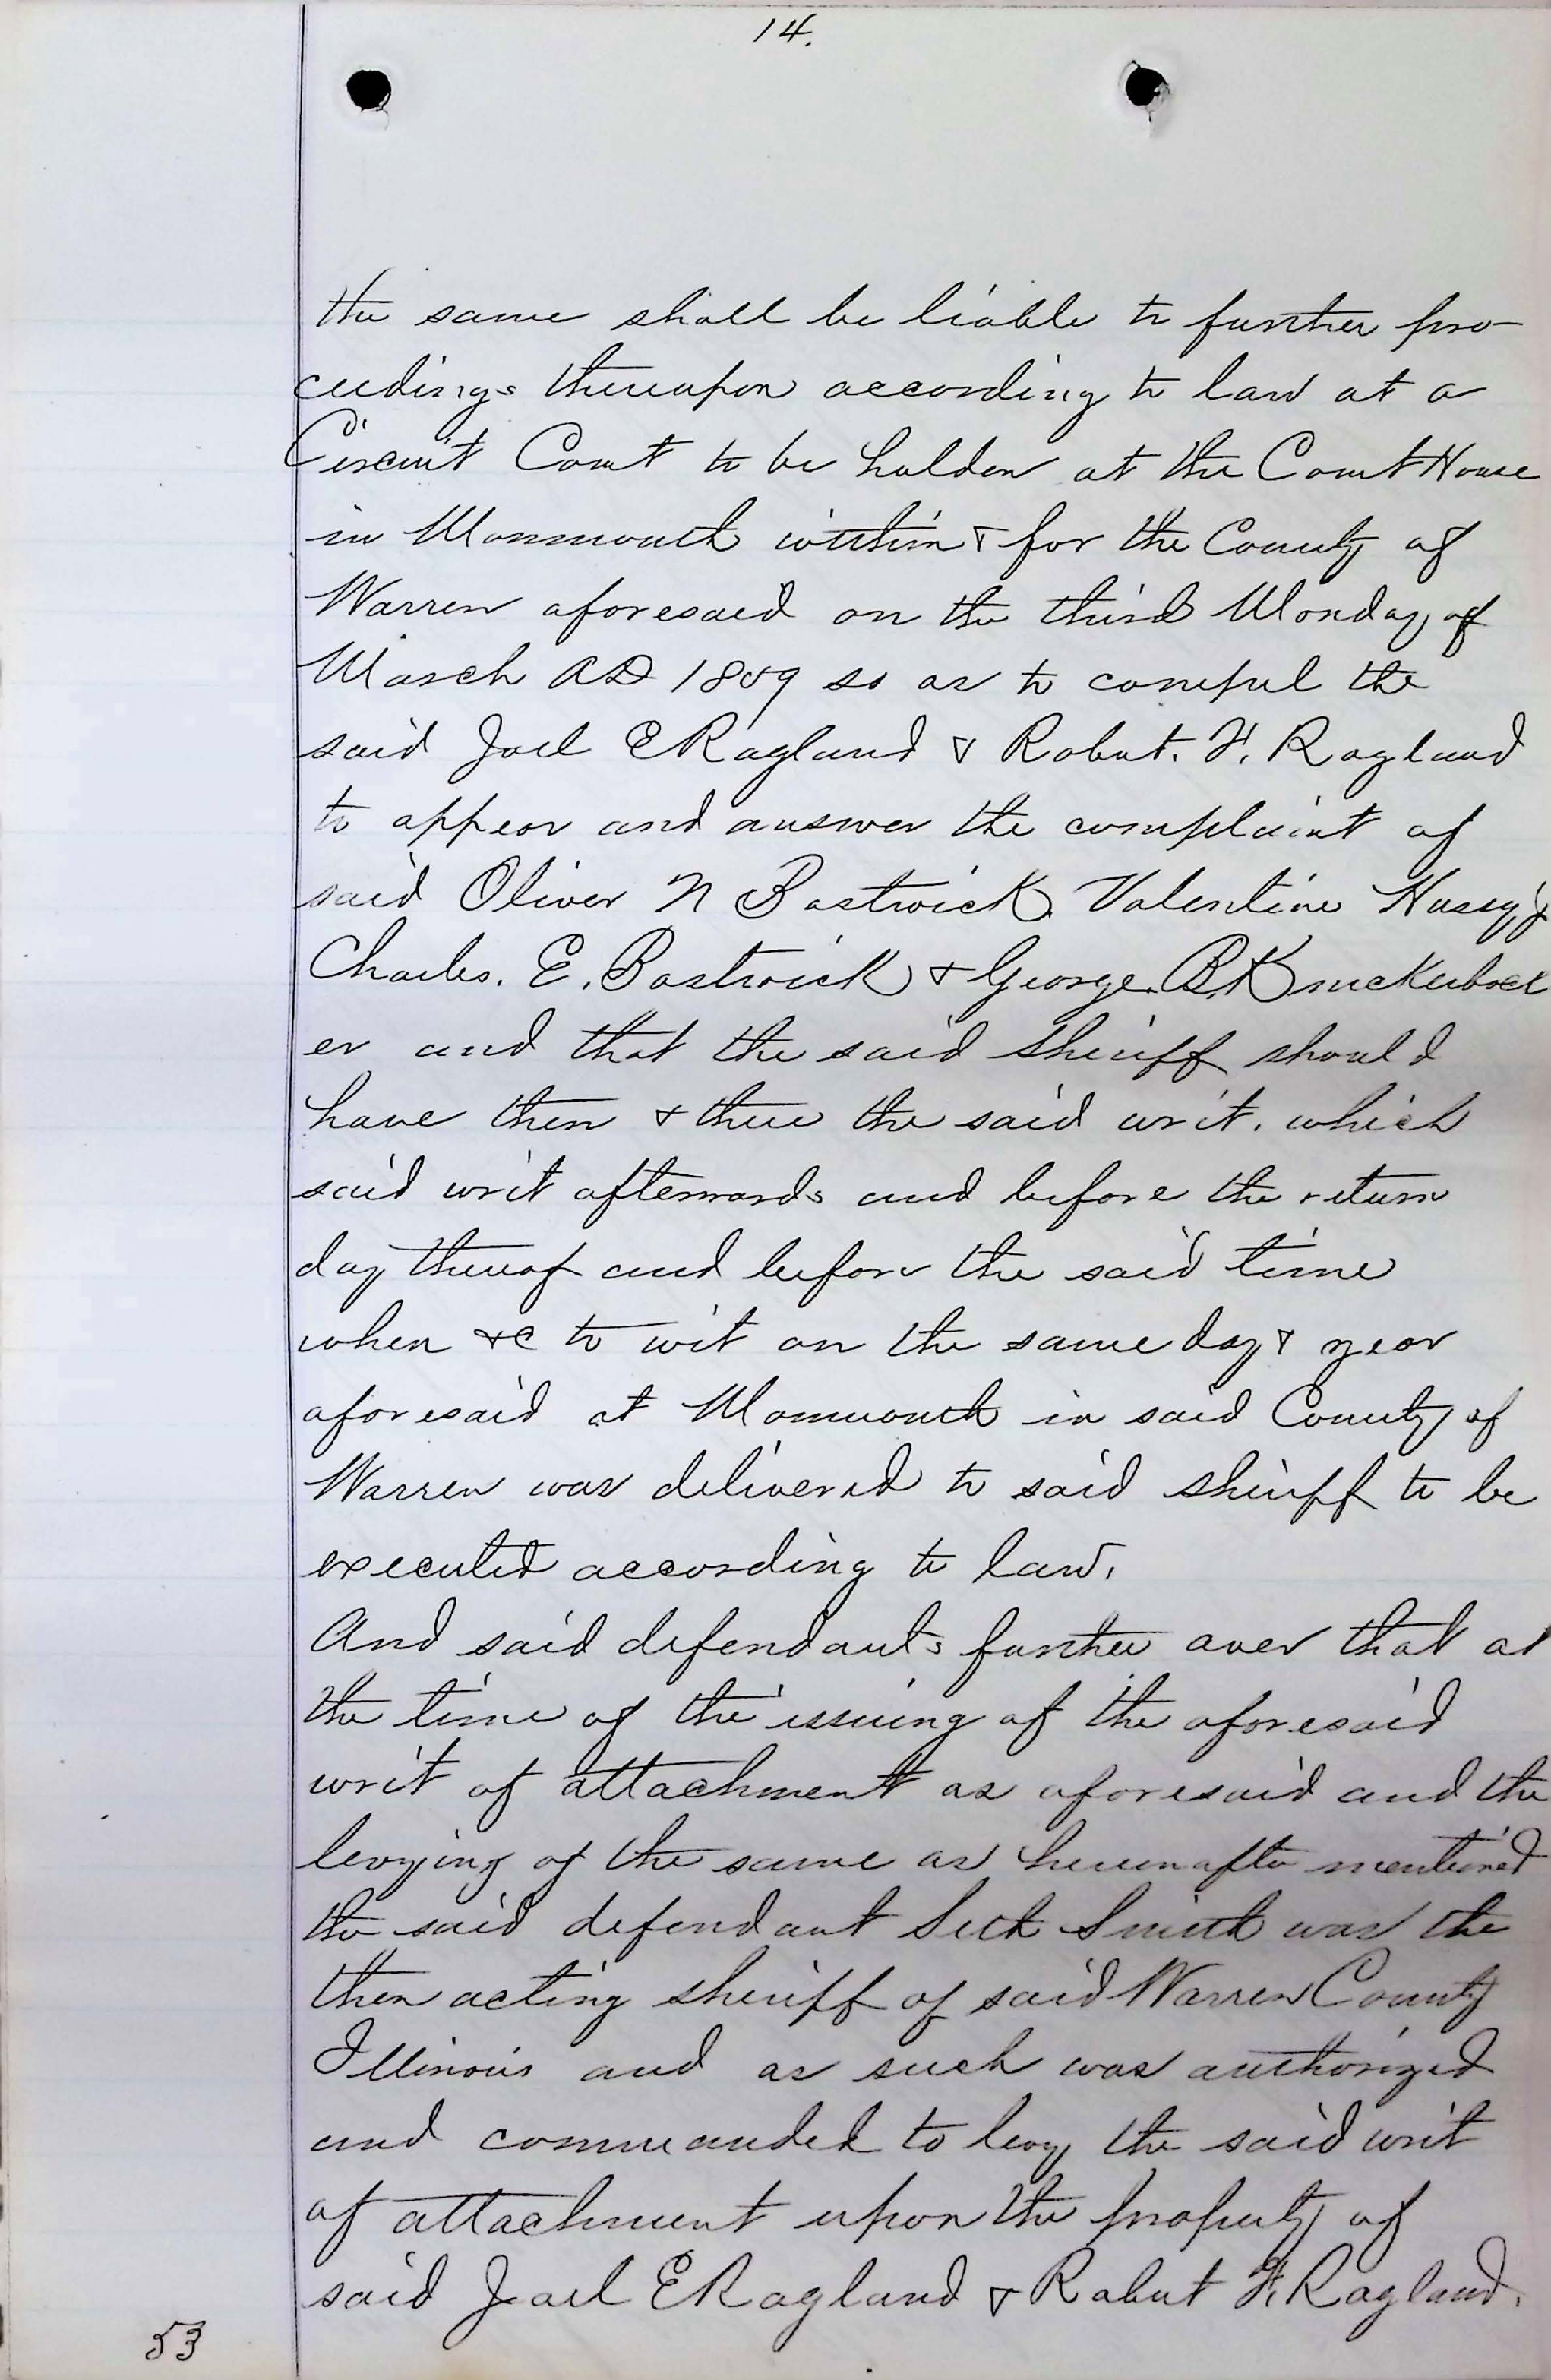 14.
the same shall be liable to further pro-
ceedings thereupon according to law at a
Circuit Court to be holden at the Court House
in Monmouth within & for the County of
Warren aforesaid on the third Monday of
March AD 1859 so as to compel the
said Joel E Ragland & Robert. F. Ragland
to appear and answer the complaint of
said Oliver N Bostwick Valentine Hussey
Charles. E. Bostwick & George. B. Knickerbock
er and that the said Sheriff should
have then & there the said writ. which
said writ afterwards and before the return
day thereof and before the said time
when &c to wit on the same day & year
aforesaid at Monmouth in said County of
Warren was delivered to said sheriff to be
executed according to law.
And said defendants further aver that at
the time of the issuing of the aforesaid
writ of attachment as aforesaid and the
levying of the same as hereinafter mentioned
the said defendant Seth Smith was the
then acting sheriff of said Warren County
Illinois and as such was authorized
and commanded to levy the said writ
of attachment upon the property of
said Joel E Ragland & Robert F. Ragland.
53